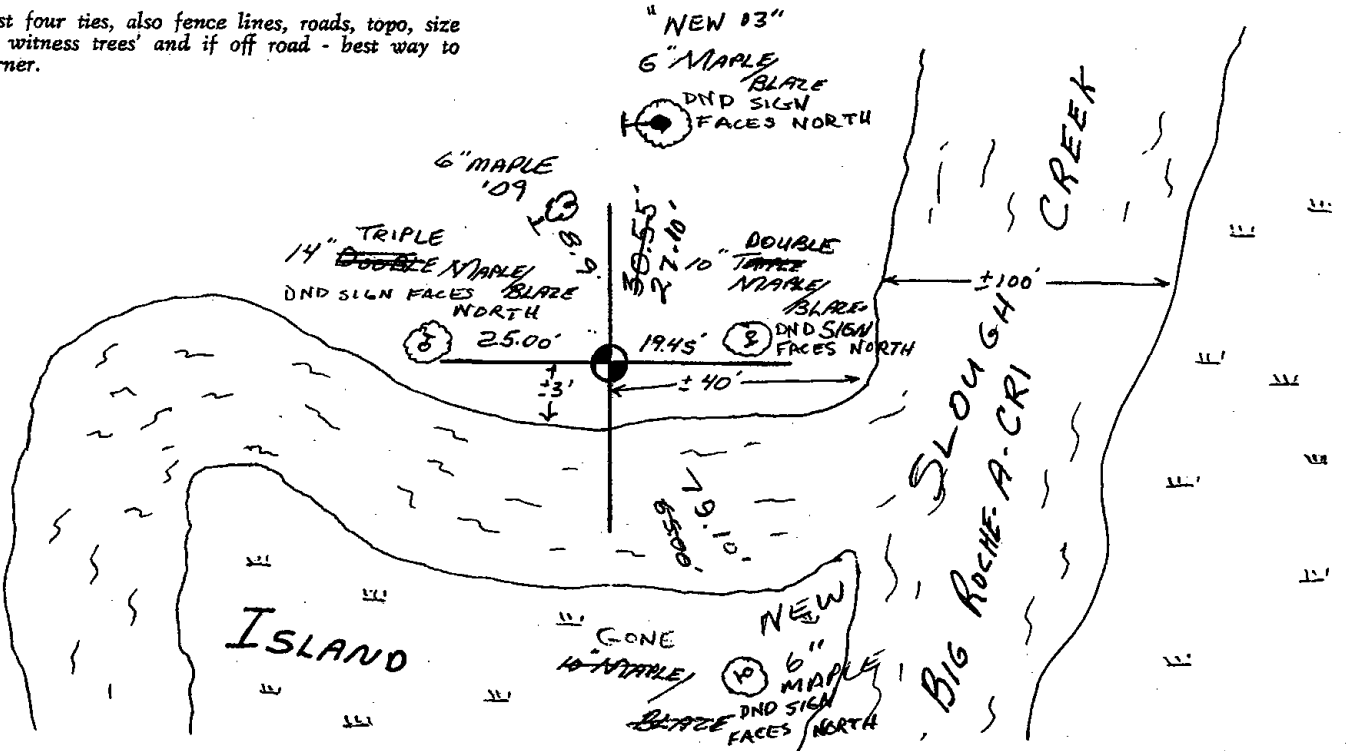 st four ties, also fence lines, roads, topo, size
witness trees' and if off road - best way to
rner.
"NEW 03"
6" MAPLE/
BLAZE
DND SIGN
FACES NORTH
6" MAPLE
'09
8.9'
30.55'
27.10'
TRIPLE
14" DOUBLE MAPLE/
DND SIGN FACES BLAZE
NORTH
25.00'
DOUBLE
10" TRIPLE
MAPLE/
BLAZE
DND SIGN
FACES NORTH
19.45'
±3'
±40'
±100'
SLOUGH CREEK
BIG ROCHE-A-CRI
79.10'
85.00'
ISLAND
GONE
10" MAPLE/
BLAZE
NEW
6"
MAPLE
DND SIGN
FACES NORTH